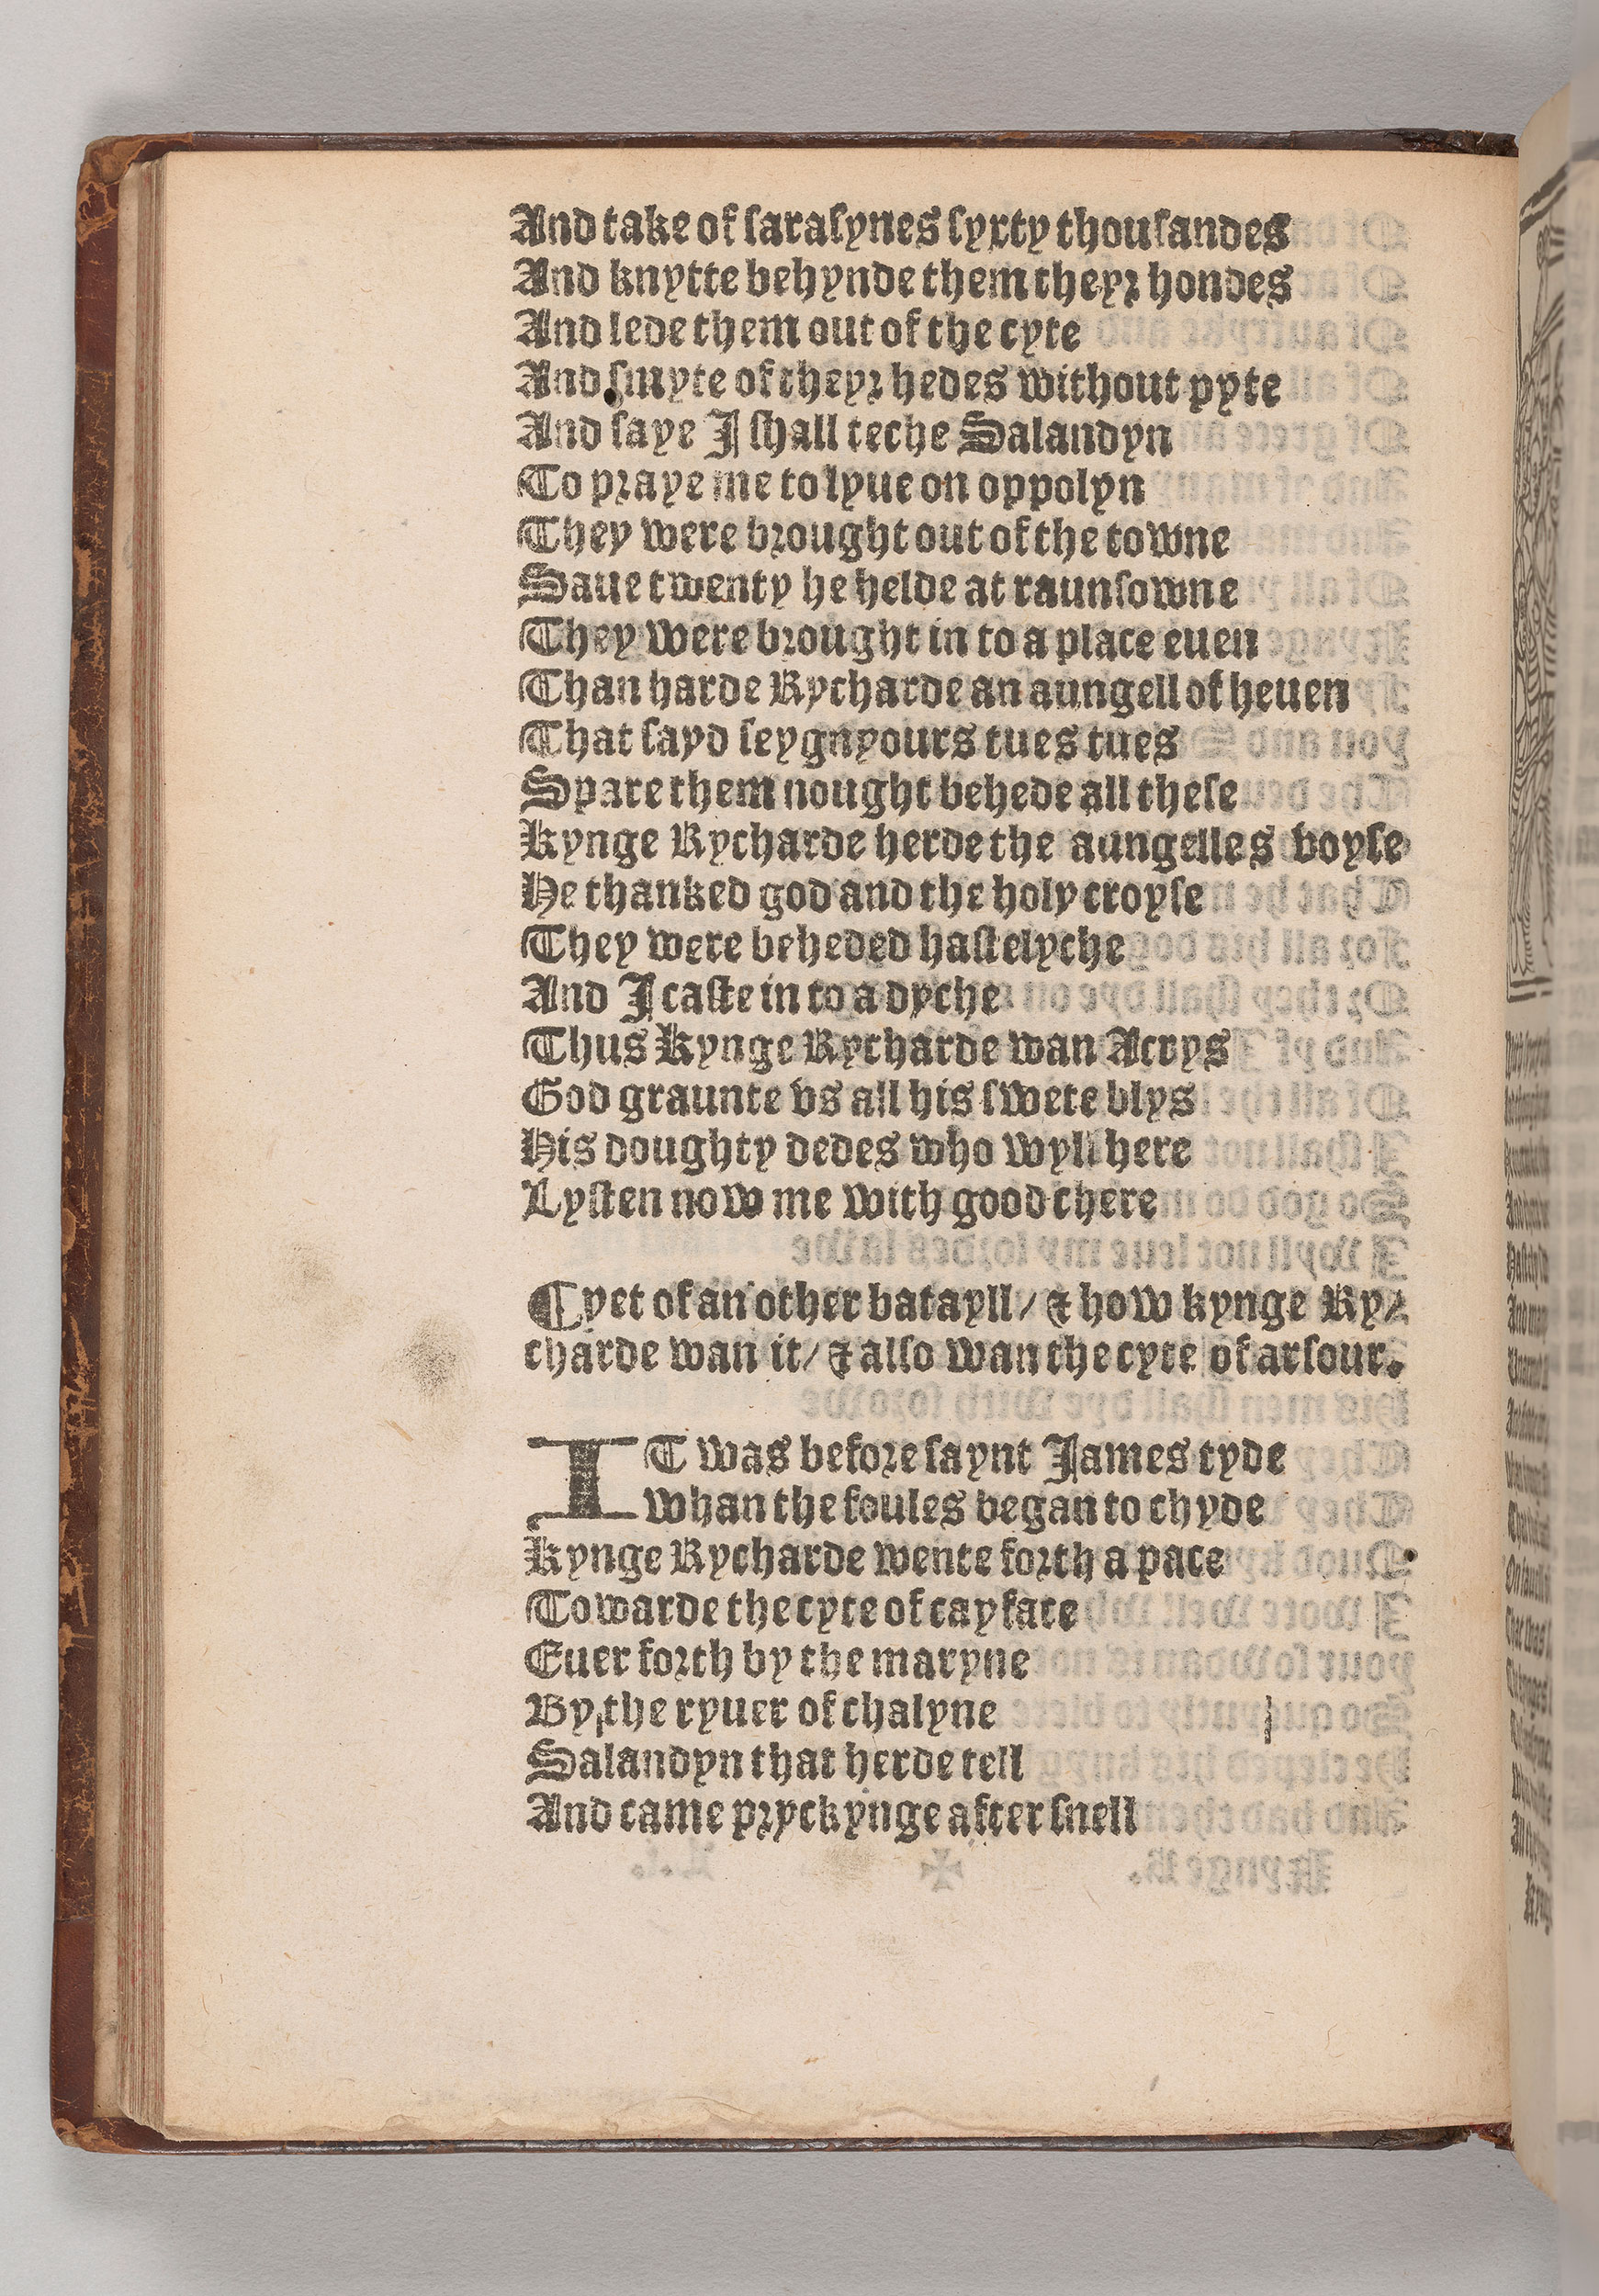 And take of ſaraſynes ſyxty thouſandes
And knytte behynde them theyꝛ hondes
And lede them out of the cyte
And ſmyte of theyꝛ hedes without pyte
And ſaye I ſhall teche Salandyn
To pꝛaye me to lyue on oppolyn
They were bꝛought out of the towne
Saue twenty he helde at raunſowne
They were bꝛought in to a place euen
Than harde Rycharde an aungell of heuen
That ſayd ſeygnyours tues tues
Spare them nought behede all theſe
Kynge Rycharde herde the aungelles voyſe
He thanked god and the holy croyſe
They were beheded haſtelyche
And I caſte in to a dyche
Thus Kynge Rycharde wan Acrys
God graunte vs all his ſwete blys
His doughty dedes who wyll here
Lyſten now me with good chere
¶ yet of an other batayll / & how kynge Ry/
charde wan it / & alſo wan the cyte of arſour.
IT was befoꝛe ſaynt James tyde
whan the foules began to chyde
Kynge Rycharde wente foꝛth a pace
Towarde the cyte of cayface
Euer foꝛth by the maryne
By the ryuer of chalyne
Salandyn that herde tell
And came pꝛyckynge after ſnell